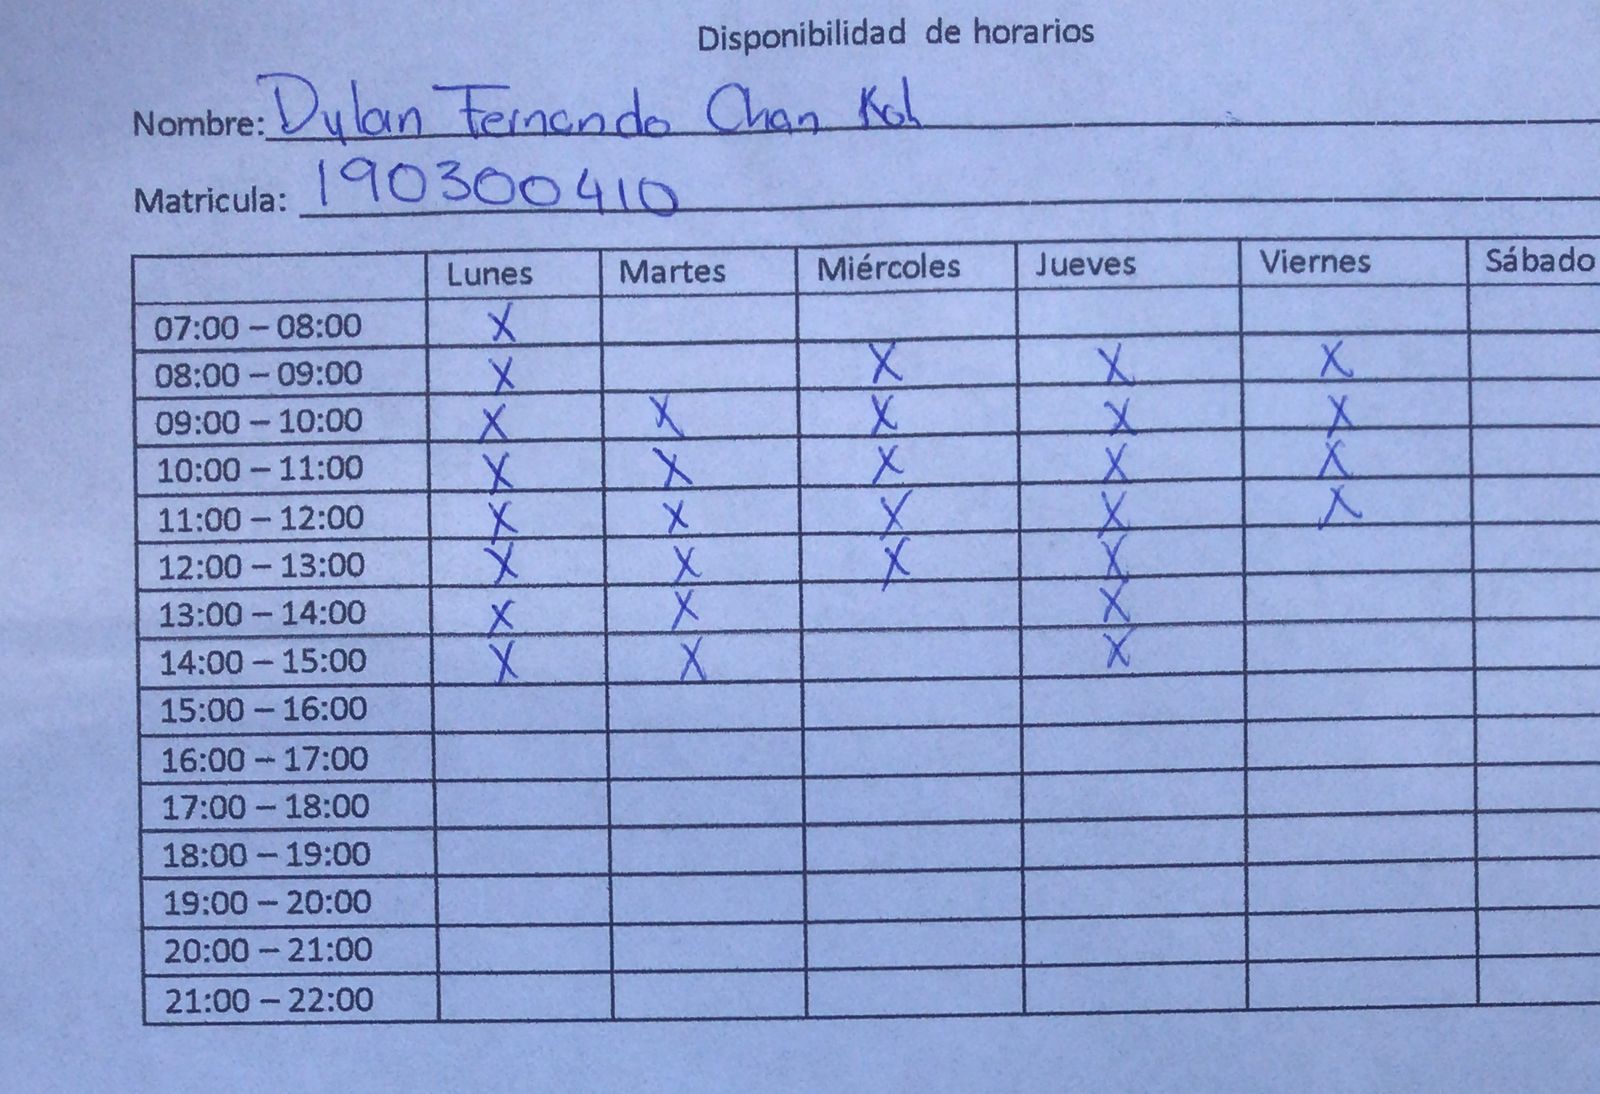 Disponibilidad de horarios
Nombre: Dylan Fernando Chan Koh
Matricula: 190300410
Lunes Martes Miércoles Jueves Viernes Sábado
07:00 – 08:00 X
08:00 – 09:00 X X X X
09:00 – 10:00 X X X X X
10:00 – 11:00 X X X X X
11:00 – 12:00 X X X X X
12:00 – 13:00 X X X X
13:00 – 14:00 X X X
14:00 – 15:00 X X X
15:00 – 16:00
16:00 – 17:00
17:00 – 18:00
18:00 – 19:00
19:00 – 20:00
20:00 – 21:00
21:00 – 22:00